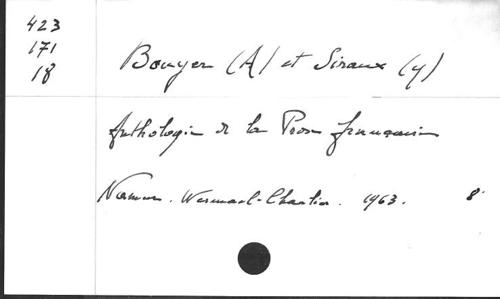 423
171
18
Bouyer (A) et Siraux (Y)
Anthologie de la Prose française
Namur. Wesmael-Charlier. 1963. 8°